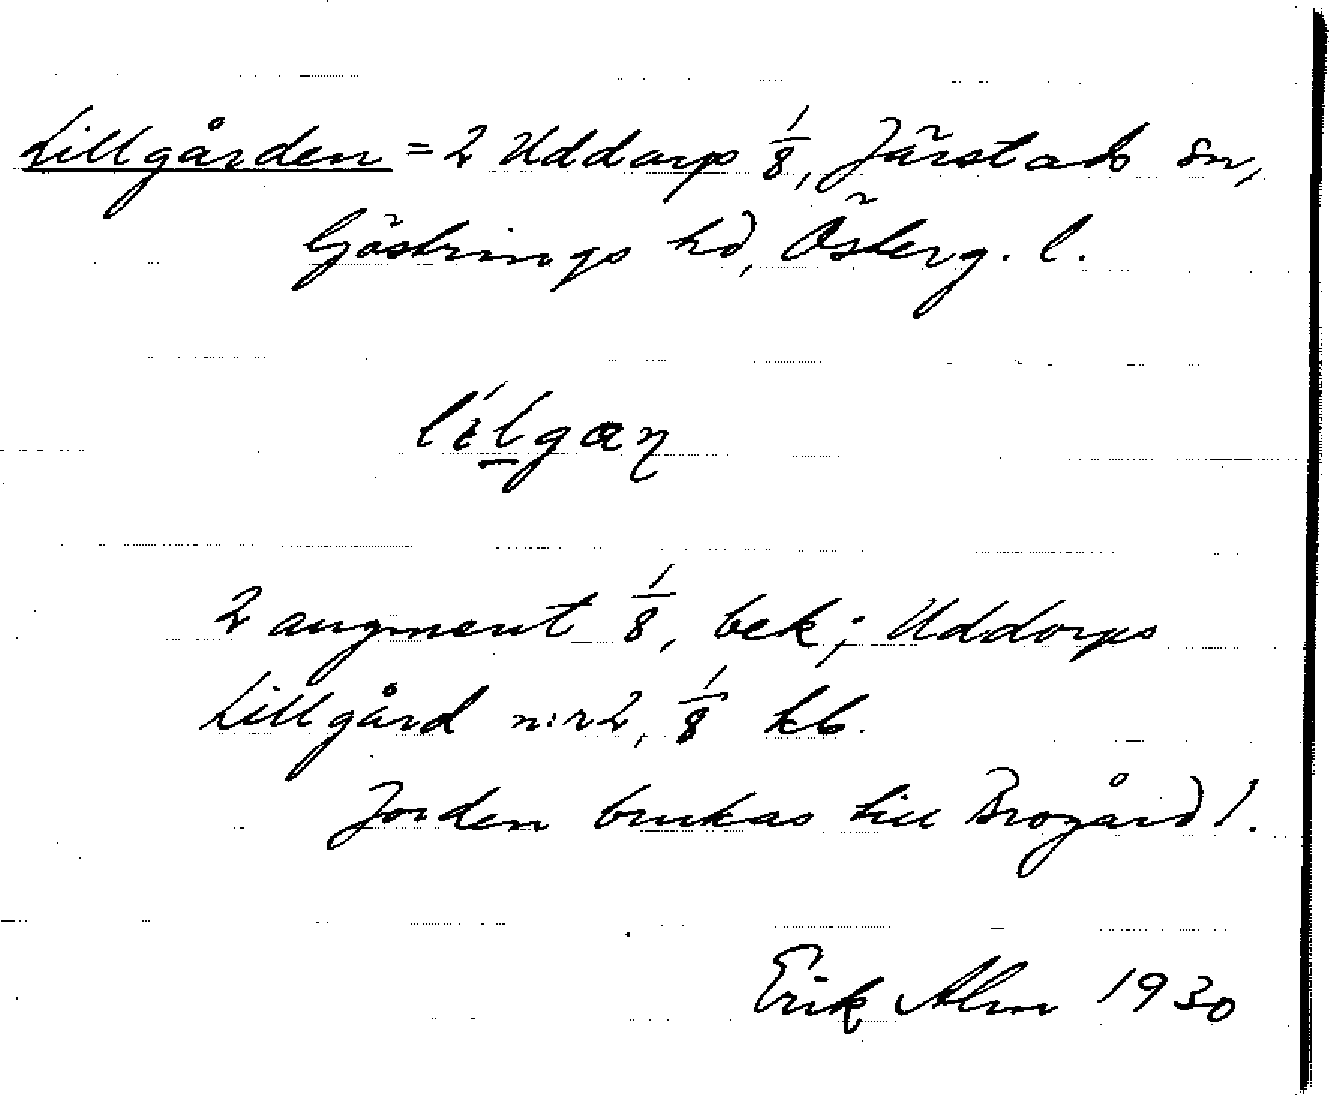 Lillgården = 2 Uddarp 1/8, Järstads sn,
Göstrings hd, Österg. l.
lílgaɳ
2 augment 1/8, bek; Uddorps
Lillgård n:r 2, 1/8 kb.
Jorden brukas till Brogård 1.
Erik Alm 1930